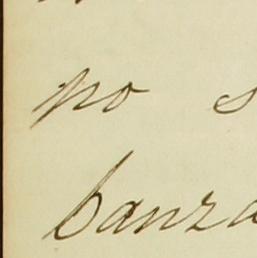 no s
banza